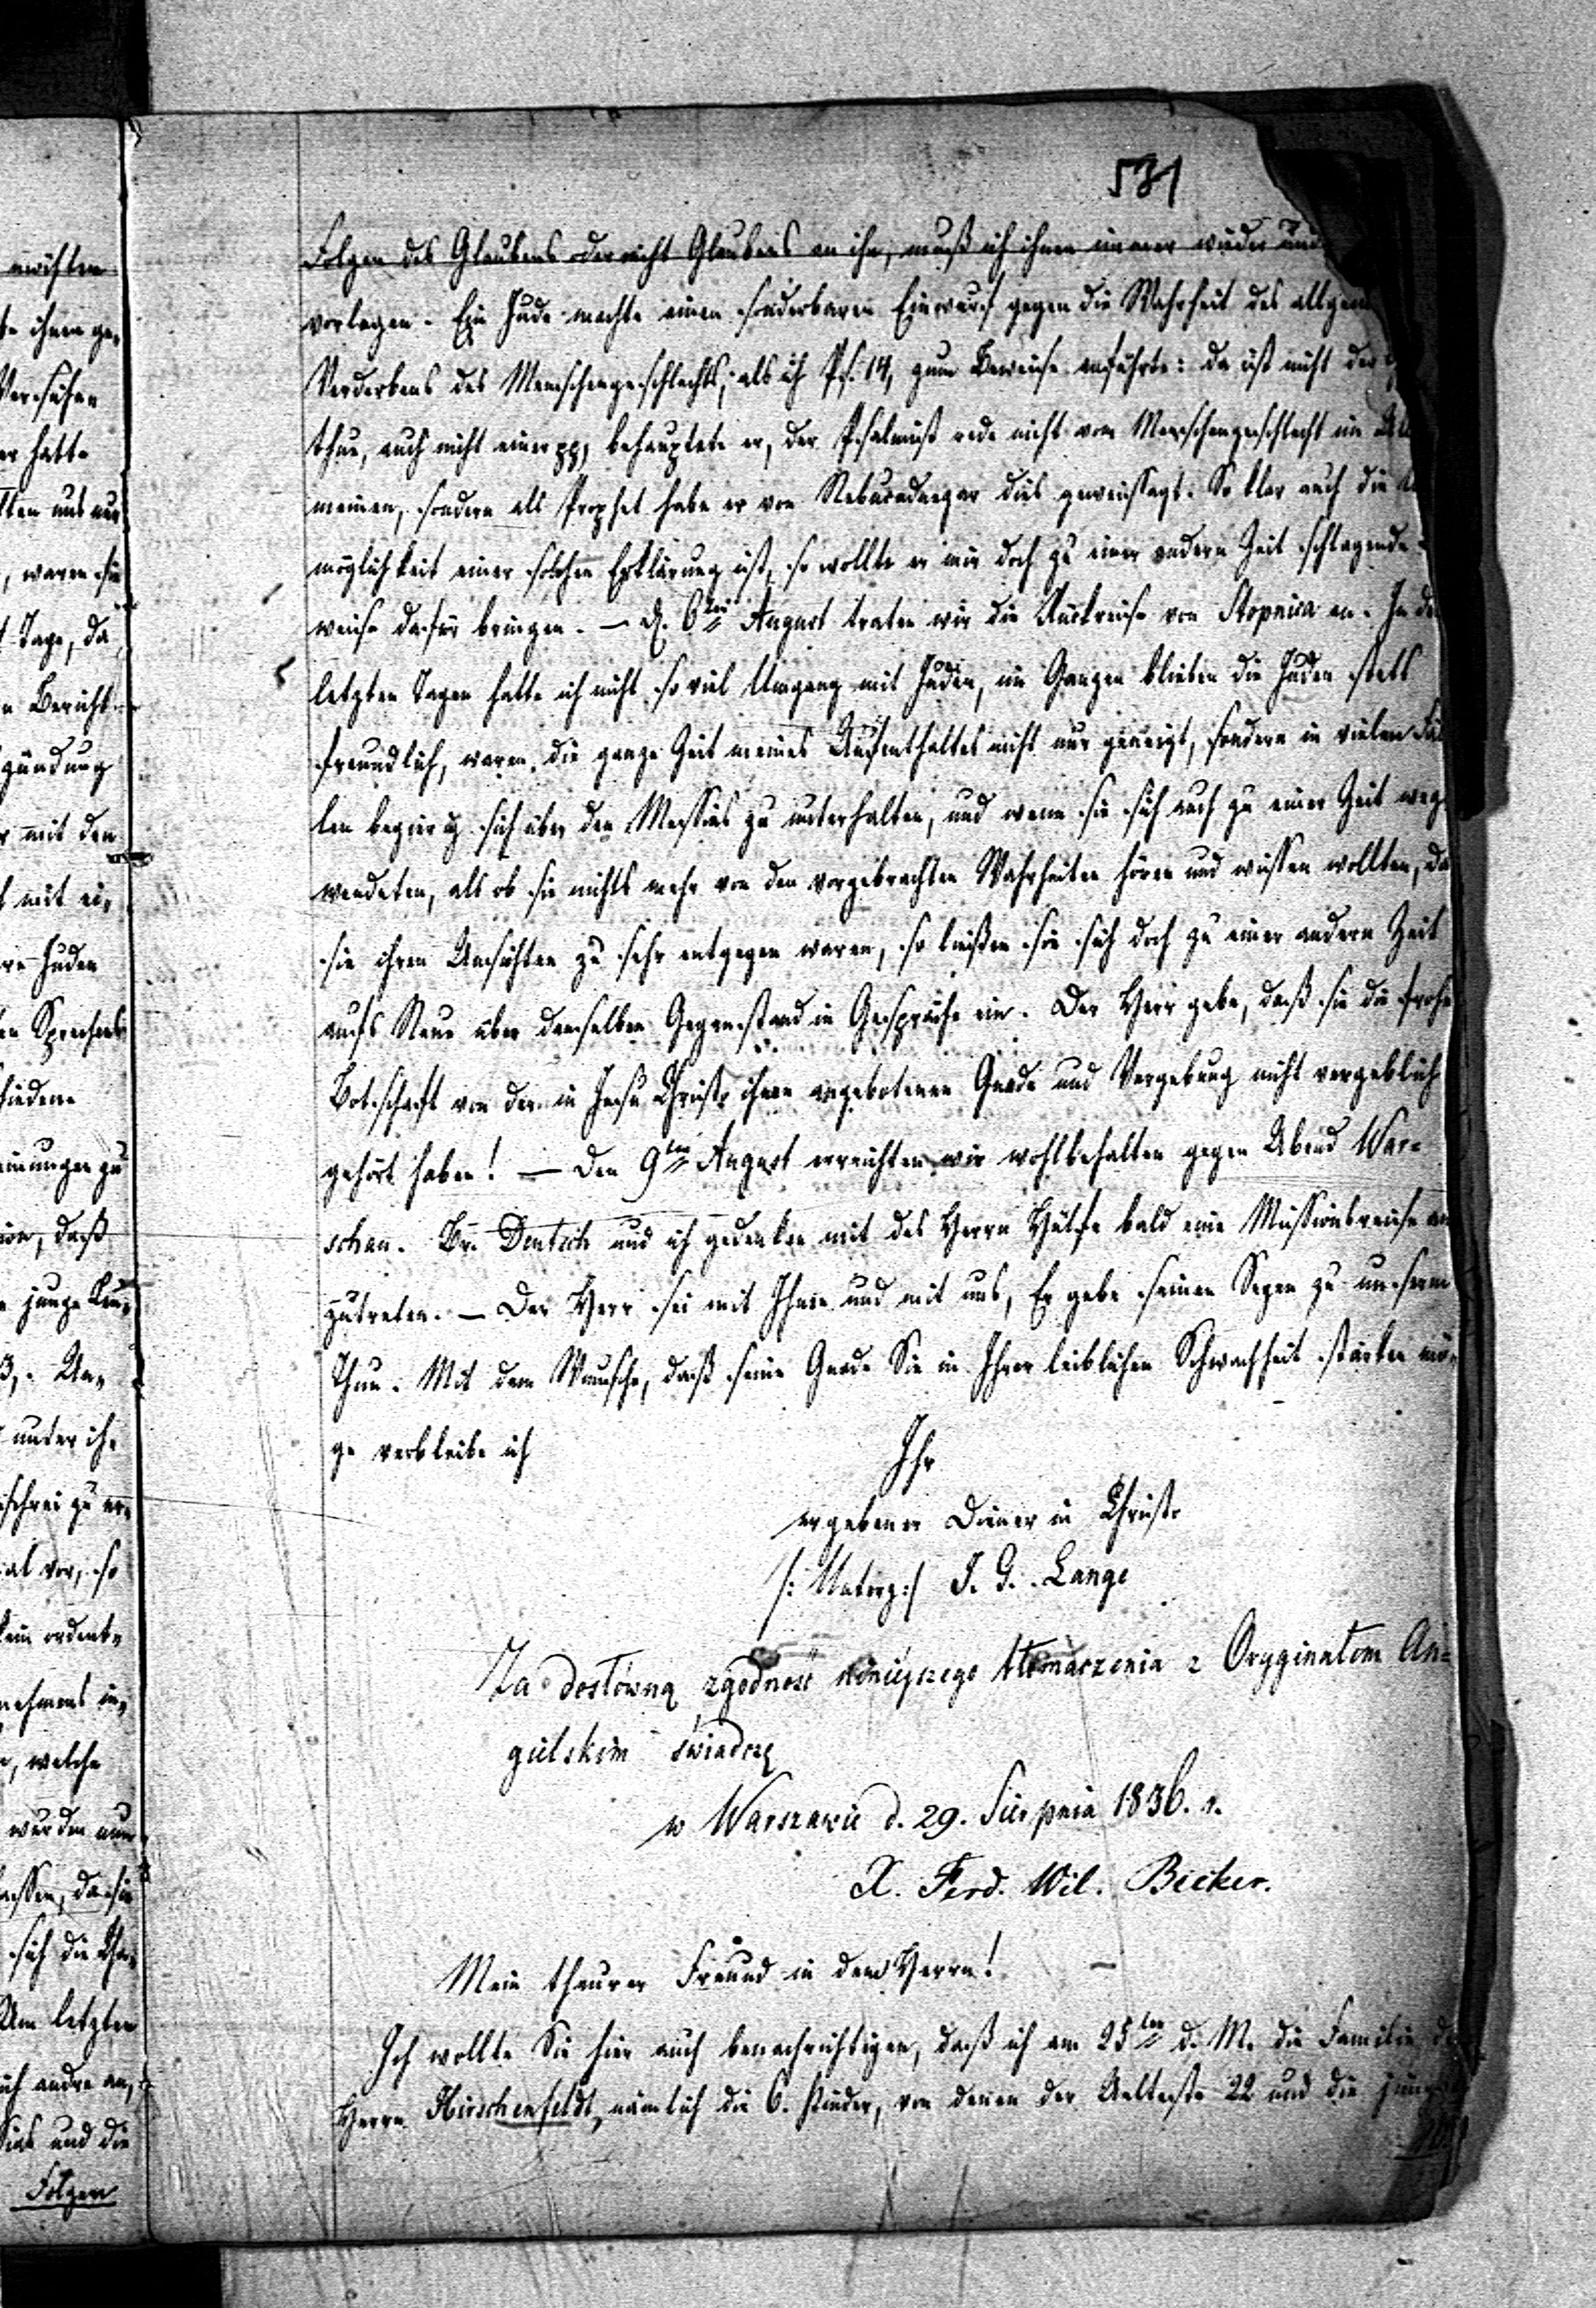 531
Folgen des Glaubens oder nicht Glaubens an ihn, muß ich ihnen immer wieder und
vorlegen. Ein Jude machte einen sonderbaren Einwurf gegen die Wahrheit des allgem
Verderbens des Menschengeschlechts; als ich Ps. 14, zum Beweise anführte: da ist nicht der
thue, auch nicht einer pp, behauptete er, der Psalmist rede nicht vom Menschengeschlecht im All
meinen, sondern als Prophet habe er von Nebucadnezar dies geweissagt. So klar auch die
möglichkeit einer solchen Erklärung ist, so wollte er mir doch zu einer andern Zeit schlagende
weise dafür bringen. — D. 6ten August traten wir die Rückreise von Stopnica an. In den
letzten Tagen hatte ich nicht so viel Umgang mit Juden, im Ganzen blieben die Juden stets
freundlich, waren die ganze Zeit meines Aufenthaltes nicht nur geneigt, sondern in vielen Fäl
len begierig sich über den Messias zu unterhalten, und wenn sie sich auch zu einer Zeit weg
wendeten, als ob sie nichts mehr von den vorgebrachten Wahrheiten hören und wissen wollten, da
sie ihren Ansichten zu sehr entgegen waren, so ließen sie sich doch zu einer andern Zeit
aufs Neue über denselben Gegenstand in Gespräche ein. Der Herr gebe, daß sie die frohe
Botschaft von der in Jesu Christo ihnen angebotenen Gnade und Vergebung nicht vergeblich
gehört haben! — Den 9ten August erreichten wir wohlbehalten gegen Abend War-
schau. Br. Deutsch und ich gedenken mit des Herrn Hülfe bald eine Missionsreise an
zutreten. — Der Herr sei mit Ihnen und mit uns, Er gebe seinen Segen zu unserm
Thun. Mit dem Wunsche, daß seine Gnade Sie in Ihrer leiblichen Schwachheit stärken mö-
ge verbleibe ich
Ihr
ergebener Diener in Christo
/: Unterz:/ J. G. Lange
Za dosłowną zgodność niniejszego tłomaczenia z Oryginałem An-
gielskim świadczę
w Warszawie d. 29. Sierpnia 1836. r.
X. Ferd. Wil. Becker.
Mein theurer Freund in dem Herrn!
Ich wollte Sie hier auch benachrichtigen, daß ich am 25ten d. M. die Familie des
Herrn Hirschenfeldt, nämlich die 6. Kinder, von denen der Aelteste 22 und die jüngste
ihnen ge-
er hatte
, waren sie
Tage, da
n Bericht
zündung
mit den
mit ei-
Juden
daß
junge Leu-
unter ih-
al vor, so
kein ordent-
, welche
wurden
sich die
Am letzten
und die
Folgen